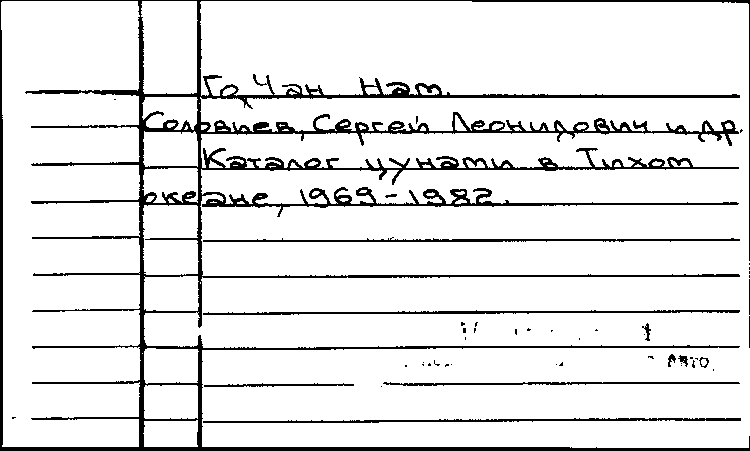 Го, Чан Нам.
Соловьев, Сергей Леонидович и др.
Каталог цунами в Тихом
океане, 1969-1982.
АВТО